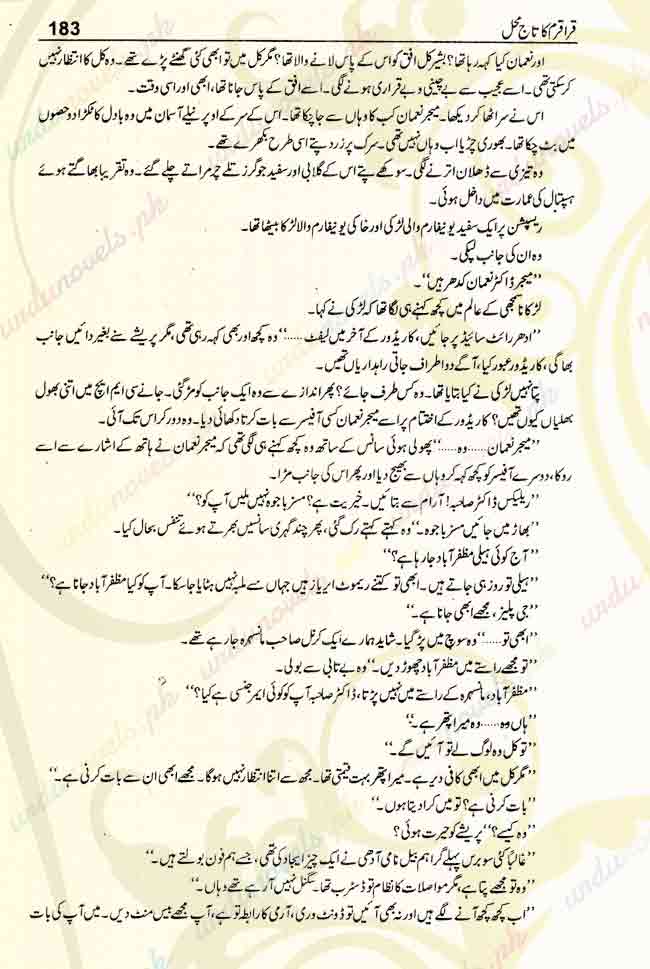 183 قراقرم کا تاج محل
اور نعمان کیا کہہ رہا تھا؟ بشیر کل افق کو اس کے پاس لانے والا تھا؟ مگر کل میں تو ابھی کئی گھنٹے پڑے تھے۔ وہ کل کا انتظار نہیں
کر سکتی تھی۔ اسے عجیب سے بے چینی و بے قراری ہونے لگی۔ اسے افق کے پاس جانا تھا، ابھی اور اسی وقت۔
اس نے سر اٹھا کر دیکھا۔ میجر نعمان کب کا وہاں سے جا چکا تھا۔ اس کے سر کے اوپر نیلے آسمان میں وہ بادل کا ٹکڑا دو حصوں
میں بٹ چکا تھا۔ بھوری چڑیا اب وہاں نہیں تھی۔ سرک پر زرد پتے اسی طرح بکھرے تھے۔
وہ تیزی سے ڈھلان اترنے لگی۔ سوکھے پتے اس کے گلابی اور سفید جوگرز تلے چرمراتے چلے گئے۔ وہ تقریبا بھاگتے ہوئے
ہسپتال کی عمارت میں داخل ہوئی۔
ریسپشن پر ایک سفید یونیفارم والی لڑکی اور خاکی یونیفارم والا لڑکا بیٹھا تھا۔
وہ ان کی جانب لپکی۔
”میجر ڈاکٹر نعمان کدھر ہیں“۔
لڑکا ناسمجھی کے عالم میں کچھ کہنے ہی لگا تھا کہ لڑکی نے کہا۔
”ادھر رائٹ سائیڈ پر جائیں، کاریڈور کے آخر میں لیفٹ......“ وہ کچھ اور بھی کہہ رہی تھی، مگر پریشے سنے بغیر دائیں جانب
بھاگی، کاریڈور عبور کیا، آگے دو اطراف جاتی راہداریاں تھیں۔
پتا نہیں لڑکی نے کیا بتایا تھا۔ وہ کس طرف جائے؟ پھر اندازے سے وہ ایک جانب کو مڑ گئی۔ جانے سی ایم ایچ میں اتنی بھول
بھلیاں کیوں تھیں؟ کاریڈور کے اختتام پر اسے میجر نعمان کسی آفیسر سے بات کرتا دکھائی دیا۔ وہ دوڑ کر اس تک آئی۔
”میجر نعمان......وہ......“ پھولی ہوئی سانس کے ساتھ وہ کچھ کہنے ہی لگی تھی کہ میجر نعمان نے ہاتھ کے اشارے سے اسے
روکا، دوسرے آفیسر کو کچھ کہہ کر وہاں سے بھیج دیا اور پھر اس کی جانب مڑا۔
”ریلیکس ڈاکٹر صاحبہ! آرام سے بتائیں۔ خیریت ہے؟ مسز باجوہ نہیں ملیں آپ کو؟“
”بھاڑ میں جائیں مسز باجوہ۔“ وہ کہتے کہتے رک گئی، پھر چند گہری سانسیں بھرتے ہوئے تنفس بحال کیا۔
”آج کوئی ہیلی مظفر آباد جا رہا ہے؟“
”ہیلی تو روز ہی جاتے ہیں۔ ابھی تو کتنے ریموٹ ایریاز ہیں جہاں سے ملبہ نہیں ہٹایا جا سکا۔ آپ کو کیا مظفر آباد جانا ہے؟“
”جی پلیز، مجھے ابھی جانا ہے۔“
”ابھی تو......“ وہ سوچ میں پڑ گیا۔ شاید ہمارے ایک کرنل صاحب مانسہرہ جا رہے تھے۔
”تو مجھے راستے میں مظفر آباد چھوڑ دیں۔“ وہ بے تابی سے بولی۔
”مظفر آباد، مانسہرہ کے راستے میں نہیں پڑتا، ڈاکٹر صاحبہ آپ کو کوئی ایمرجنسی ہے کیا؟“
”ہاں وہ......وہ میرا پتھر ہے۔“
”تو کل وہ لوگ لے تو آئیں گے۔“
”مگر کل میں ابھی کافی دیر ہے۔ میرا پتھر بہت قیمتی تھا۔ مجھ سے اتنا انتظار نہیں ہوگا۔ مجھے ابھی ان سے بات کرنی ہے۔“
”بات کرنی ہے؟ تو میں کرا دیتا ہوں۔“
”وہ کیسے؟“ پریشے کو حیرت ہوئی؟
”غالباً کئی سو برس پہلے گراہم بیل نامی آدمی نے ایک چیز ایجاد کی تھی، جسے ہم فون بولتے ہیں۔“
”وہ تو مجھے پتا ہے، مگر مواصلات کا نظام تو ڈسٹرب تھا۔ سگنل نہیں آ رہے تھے وہاں۔“
”اب کچھ کچھ آنے لگے ہیں اور نہ بھی آئیں تو ڈونٹ وری، آرمی کا رابطہ تو ہے، آپ مجھے بیس منٹ دیں۔ میں آپ کی بات
urdunovels.pk